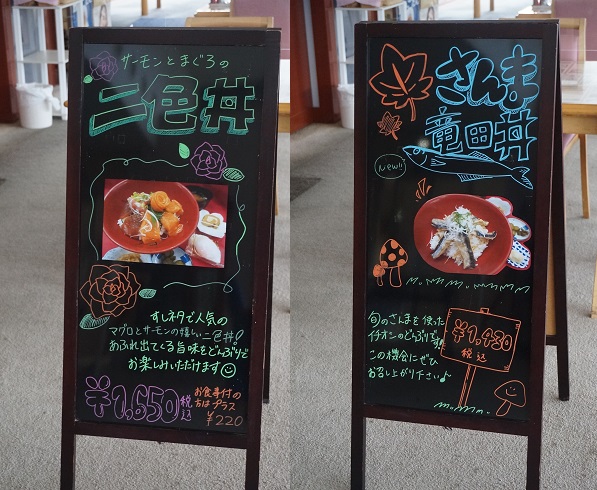 サーモンとまぐろの
二色丼
すしネタで人気の
マグロとサーモンの嬉しい二色丼!
あふれ出てくる旨味をどんぶりで
お楽しみいただけます☺
¥1,650 税込
お食事付の
方はプラス
¥220
さんま
竜田丼
New!!
旬のさんまを使った
イチオシのどんぶりです!!
この機会にぜひ
お召し上がり下さい♪
¥1,430
税込